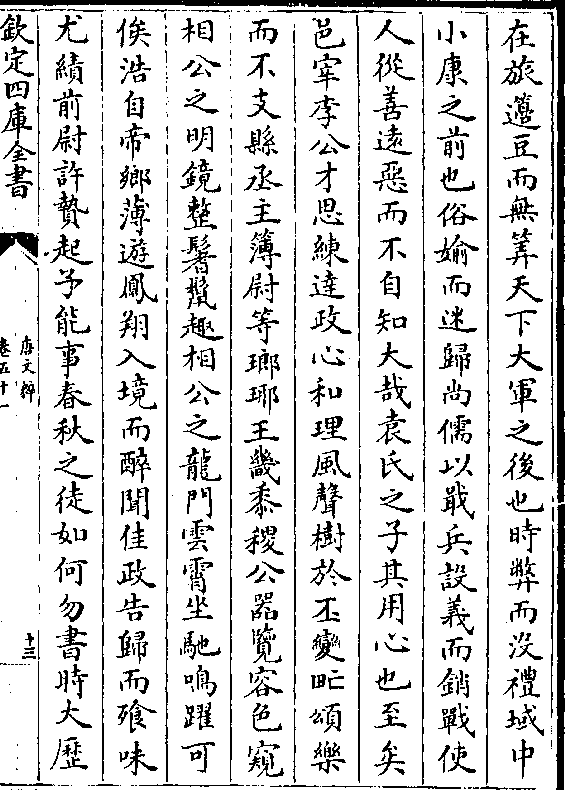 在旅籩豆而無筭天下大軍之後也時弊而沒禮域中
小康之前也俗婾而迷歸尚儒以戢兵設義而銷戰使
人從善遠惡而不自知大哉袁氏之子其用心也至矣
邑宰李公才思練達政心和理風聲樹於丕變甿頌樂
而不支縣丞主簿尉等瑯琊王畿黍稷公器覽容色窺
相公之明鏡整鬐鬛趣相公之龍門雲霄坐馳鳴躍可
俟浩自帝鄉薄遊鳳翔入境而醉聞佳政告歸而飱味
尤績前尉許贄起予能事春秋之徒如何勿書時大歷
欽定四庫全書
唐文粹
卷五十一
十三